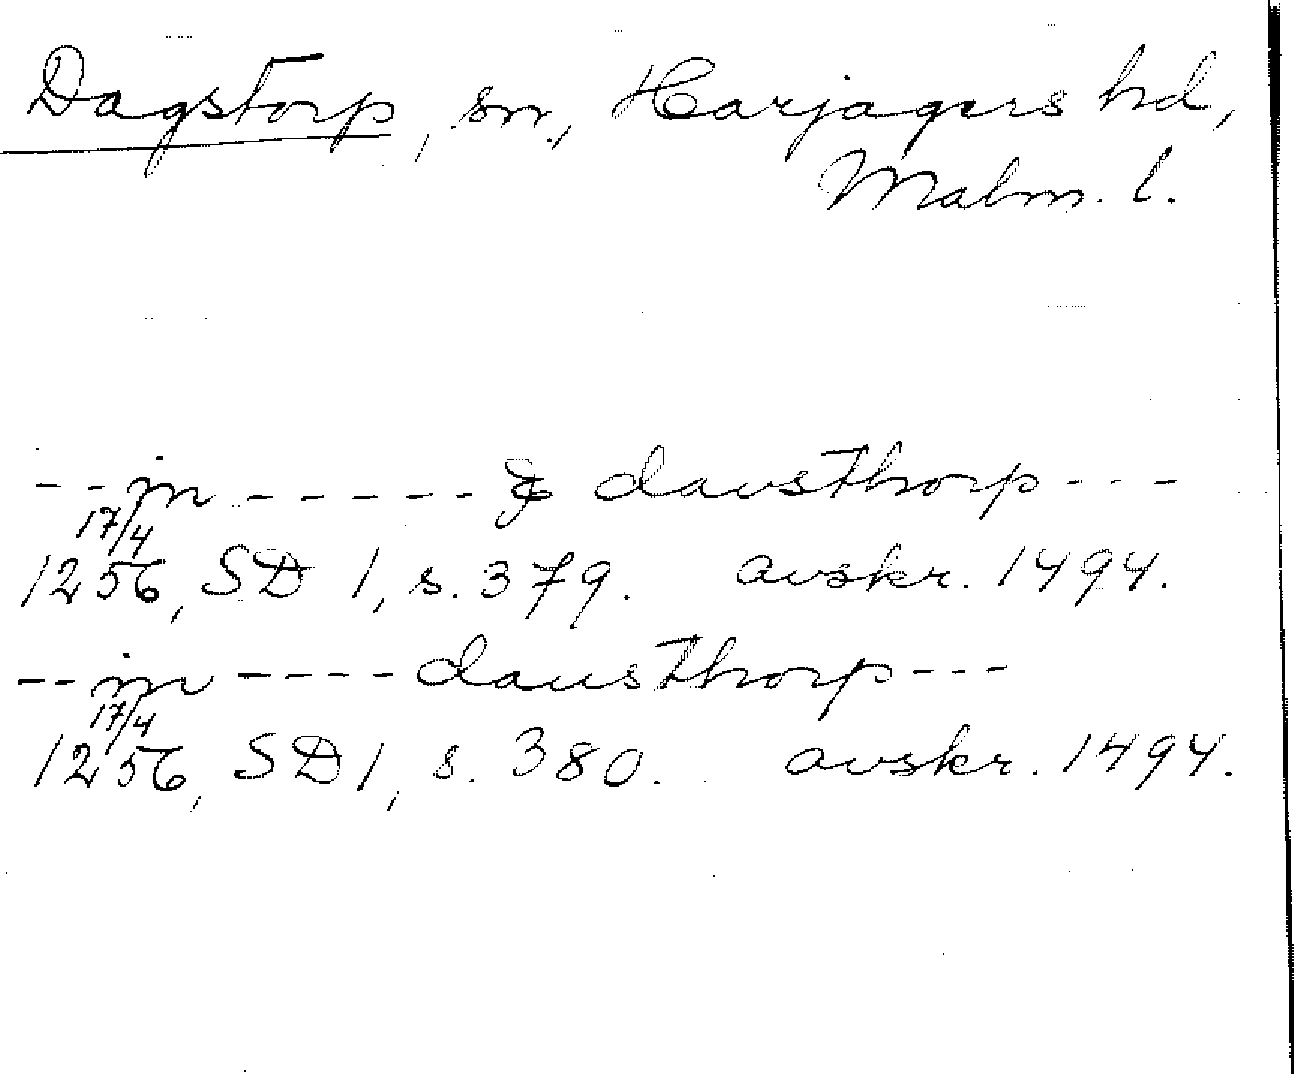 Dagstorp, sn., Harjagers hd,
Malm. l.
--in------& davsthorp---
17/4
1256, SD 1, s. 379. avskr. 1494.
--in----dausthorp---
17/4
1256, SD 1, s. 380. avskr. 1494.